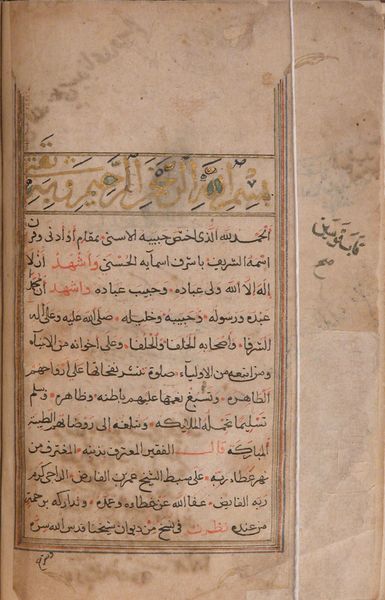 بسم الله الرحمن الرحيم وبه ثقتي
الحمد لله الذي اختص حبيبه الاسنى بمقام او ادنى وقرن
اسمه الشريف باشرف اسمايه الحسنى واشهد ان لا
إله إلا الله ولى عباده وحبيب عباده واشهد ان محمد
عبده ورسوله وحبيبه وخليله صلى الله عليه وعلى اله
الشرفا واصحابه الخلفا والحلفا وعلى اخوانه من الانبياء
ومن اتبعه من الاولياء صلوة تنشر نفحاتها على ارواحهم
الطاهره وتسبغ نعمها عليهم باطنه وظاهره وسلم
تسليما تحمله الملايكه وتبلغه الى روضاتهم الطيبة
المباركة قال الفقير المعترف بذنبه المغترف من
نهر عطاء ربه على سبط الشيخ عمر بن الفارض الراجى كرم
ربه الفايض عفا الله عن خطاه وعمده وتداركه برحمة
من عنده نظرت في نسخ من ديوان شيخنا قدس الله سره
قاب قوسين
صح